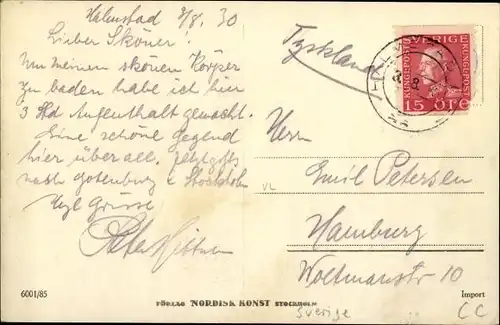 Halmstad 9/8. 30
Lieber Skönér!
Um meinen skönen Körper
zu baden habe ich hier
3 Std Aufenthalt gemacht.
Eine schöne Gegend
hier überall. Jetzt gehts
nach Gotenburg & Stockholm
Hzl Grüsse
Tyskland
SVERIGE
KUNGSPOST
KUNGSPOST
15 ÖRE
Herrn
Emil Petersen
Hamburg
Woltmanstr 10
VL
6001/85
FÖRLAG NORDISK KONST STOCKHOLM
Import
Sverige
CC